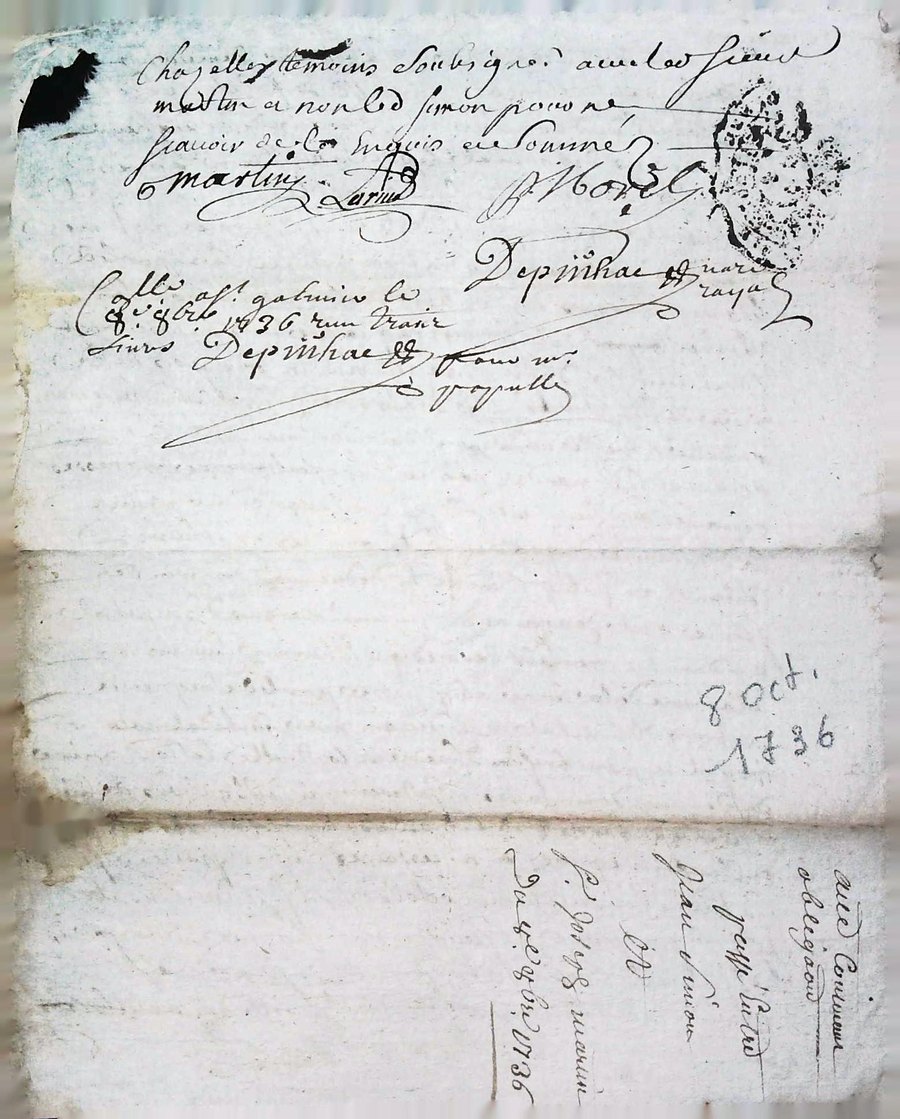 Chazelles temoins Soubsignes avec led Sieur
martin et non led Simon pour ne
Scavoir de ce Enquis et Sommé
martin Larue Morel
Depinhac nore
royal
Collé a St galmier le
8e 8bre 1736 reçu traize
Livres Depinhac pour mr
papulle
8 oct.
1736
obligaon
passé Entre
Jean Simon
Et
Sr Joseph martin
Du 8e 8bre 1736